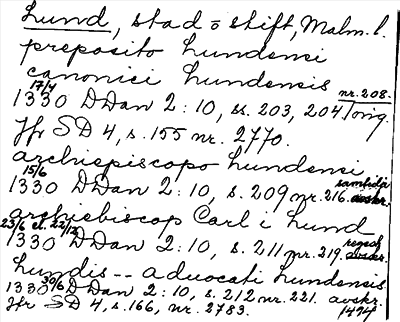 Lund, stad o stift, Malm. l.
preposito Lundensi
canonici Lundensis
17/4 nr. 208.
1330 DDan 2:10, ss. 203, 204/orig.
Jfr SD 4, s. 155 nr. 2770.
archiepiscopo Lundensi
15/6 samtida
1330 DDan 2:10, s. 209 nr. 216. avskr.
archiebiscop Carl i Lund
23/6 el. 22/12 regest
1330 DDan 2:10, s. 211 nr. 219. avskr.
Lundis -- advocati Lundensis
1330 30/6 DDan 2:10, s. 212 nr. 221. avskr.
Jfr SD 4, s. 166, nr. 2783. 1494